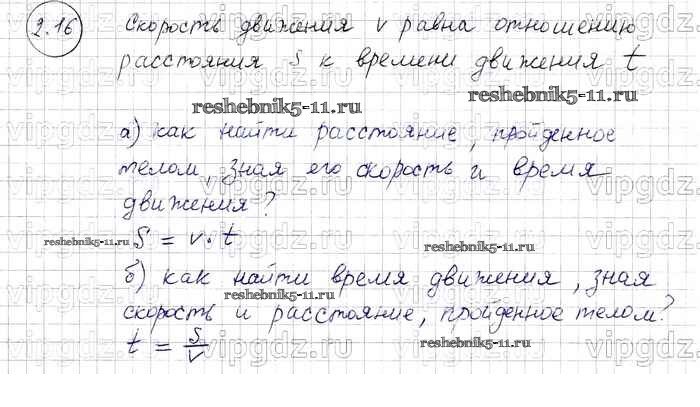 2.16 Скорость движения v равна отношению
расстояния S к времени движения t
reshebnik5-11.ru reshebnik5-11.ru
а) как найти расстояние, пройденное
телом, зная его скорость и время
движения?
reshebnik5-11.ru S = v · t reshebnik5-11.ru
б) как найти время движения, зная
reshebnik5-11.ru
скорость и расстояние, пройденное телом?
t = S/v reshebnik5-11.ru
vipgdz.ru vipgdz.ru vipgdz.ru